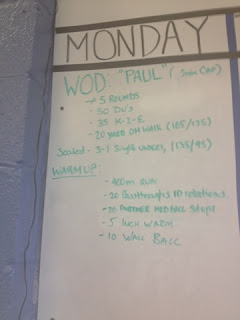 MONDAY
WOD: "PAUL" ( CAP)
→ 5 ROUNDS
- 50 DU's
- 35 K-2-E
- 20 YARD OH WALK (185/135)
Scaled - 3-1 Single Unders, (135/95)
WARMUP:
- 400m RUN
- 20 Passthroughs 10 rotations
- 20 PARTNER MED BALL Situps
- 5 INCH WORM
- 10 WALL BALL